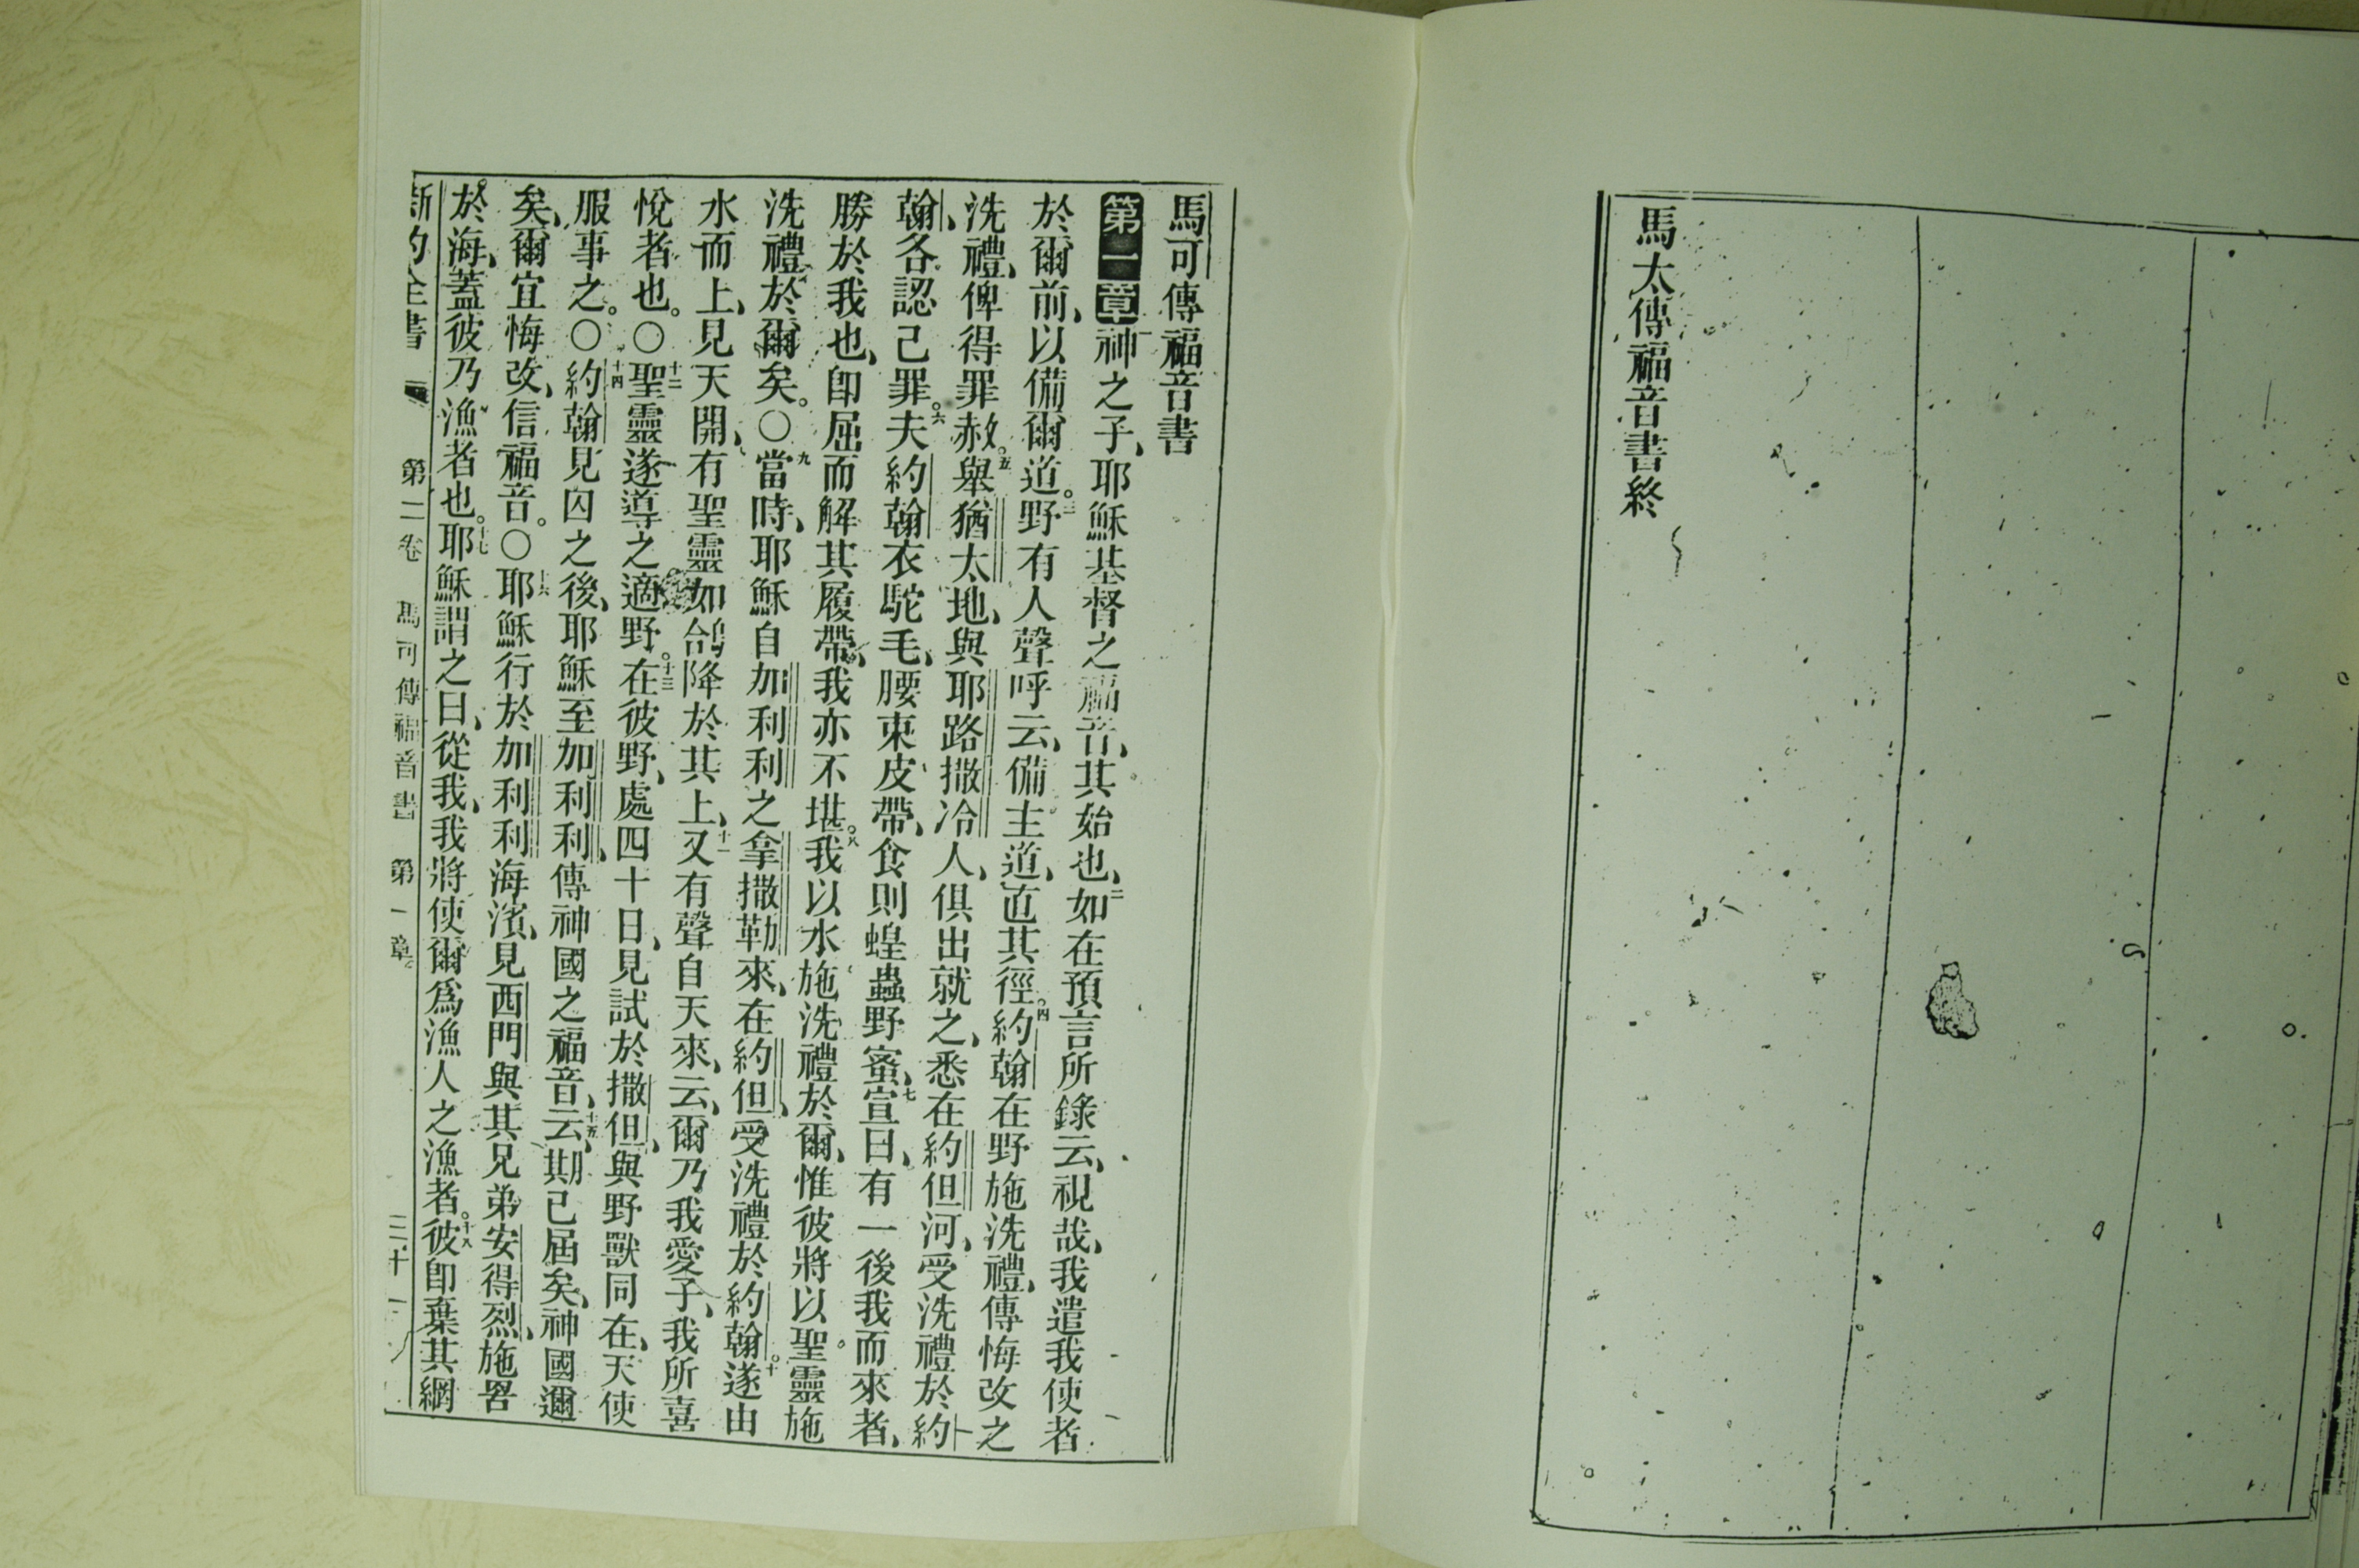 馬太傳福音書終
馬可傳福音書
第一章一神之子、耶穌基督之福音、其始也、二如在預言所錄云、視哉、我遣我使者
於爾前、以備爾道。三野有人聲呼云、備主道、直其徑。四約翰在野施洗禮、傳悔改之
洗禮、俾得罪赦。五舉猶太地、與耶路撒冷人、俱出就之、悉在約但河、受洗禮於約
翰、各認己罪。六夫約翰衣駝毛、腰束皮帶、食則蝗蟲野蜜、七宣曰、有一後我而來者、
勝於我也、卽屈而解其履帶、我亦不堪。八我以水施洗禮於爾、惟彼將以聖靈施
洗禮於爾矣。○九當時、耶穌自加利利之拿撒勒來、在約但、受洗禮於約翰。十遂由
水而上、見天開、有聖靈如鴿降於其上、十一又有聲自天來、云、爾乃我愛子、我所喜
悅者也。○十二聖靈遂導之適野。十三在彼野、處四十日、見試於撒但、與野獸同在、天使
服事之。○十四約翰見囚之後、耶穌至加利利、傳神國之福音、十五云、期已屆矣、神國邇
矣、爾宜悔改、信福音。○十六耶穌行於加利利海濱、見西門與其兄弟安得烈、施罟
於海、蓋彼乃漁者也。十七耶穌謂之曰、從我、我將使爾爲漁人之漁者。十八彼卽棄其網
新約全書 第二卷 馬可傳福音書 第一章 三十一